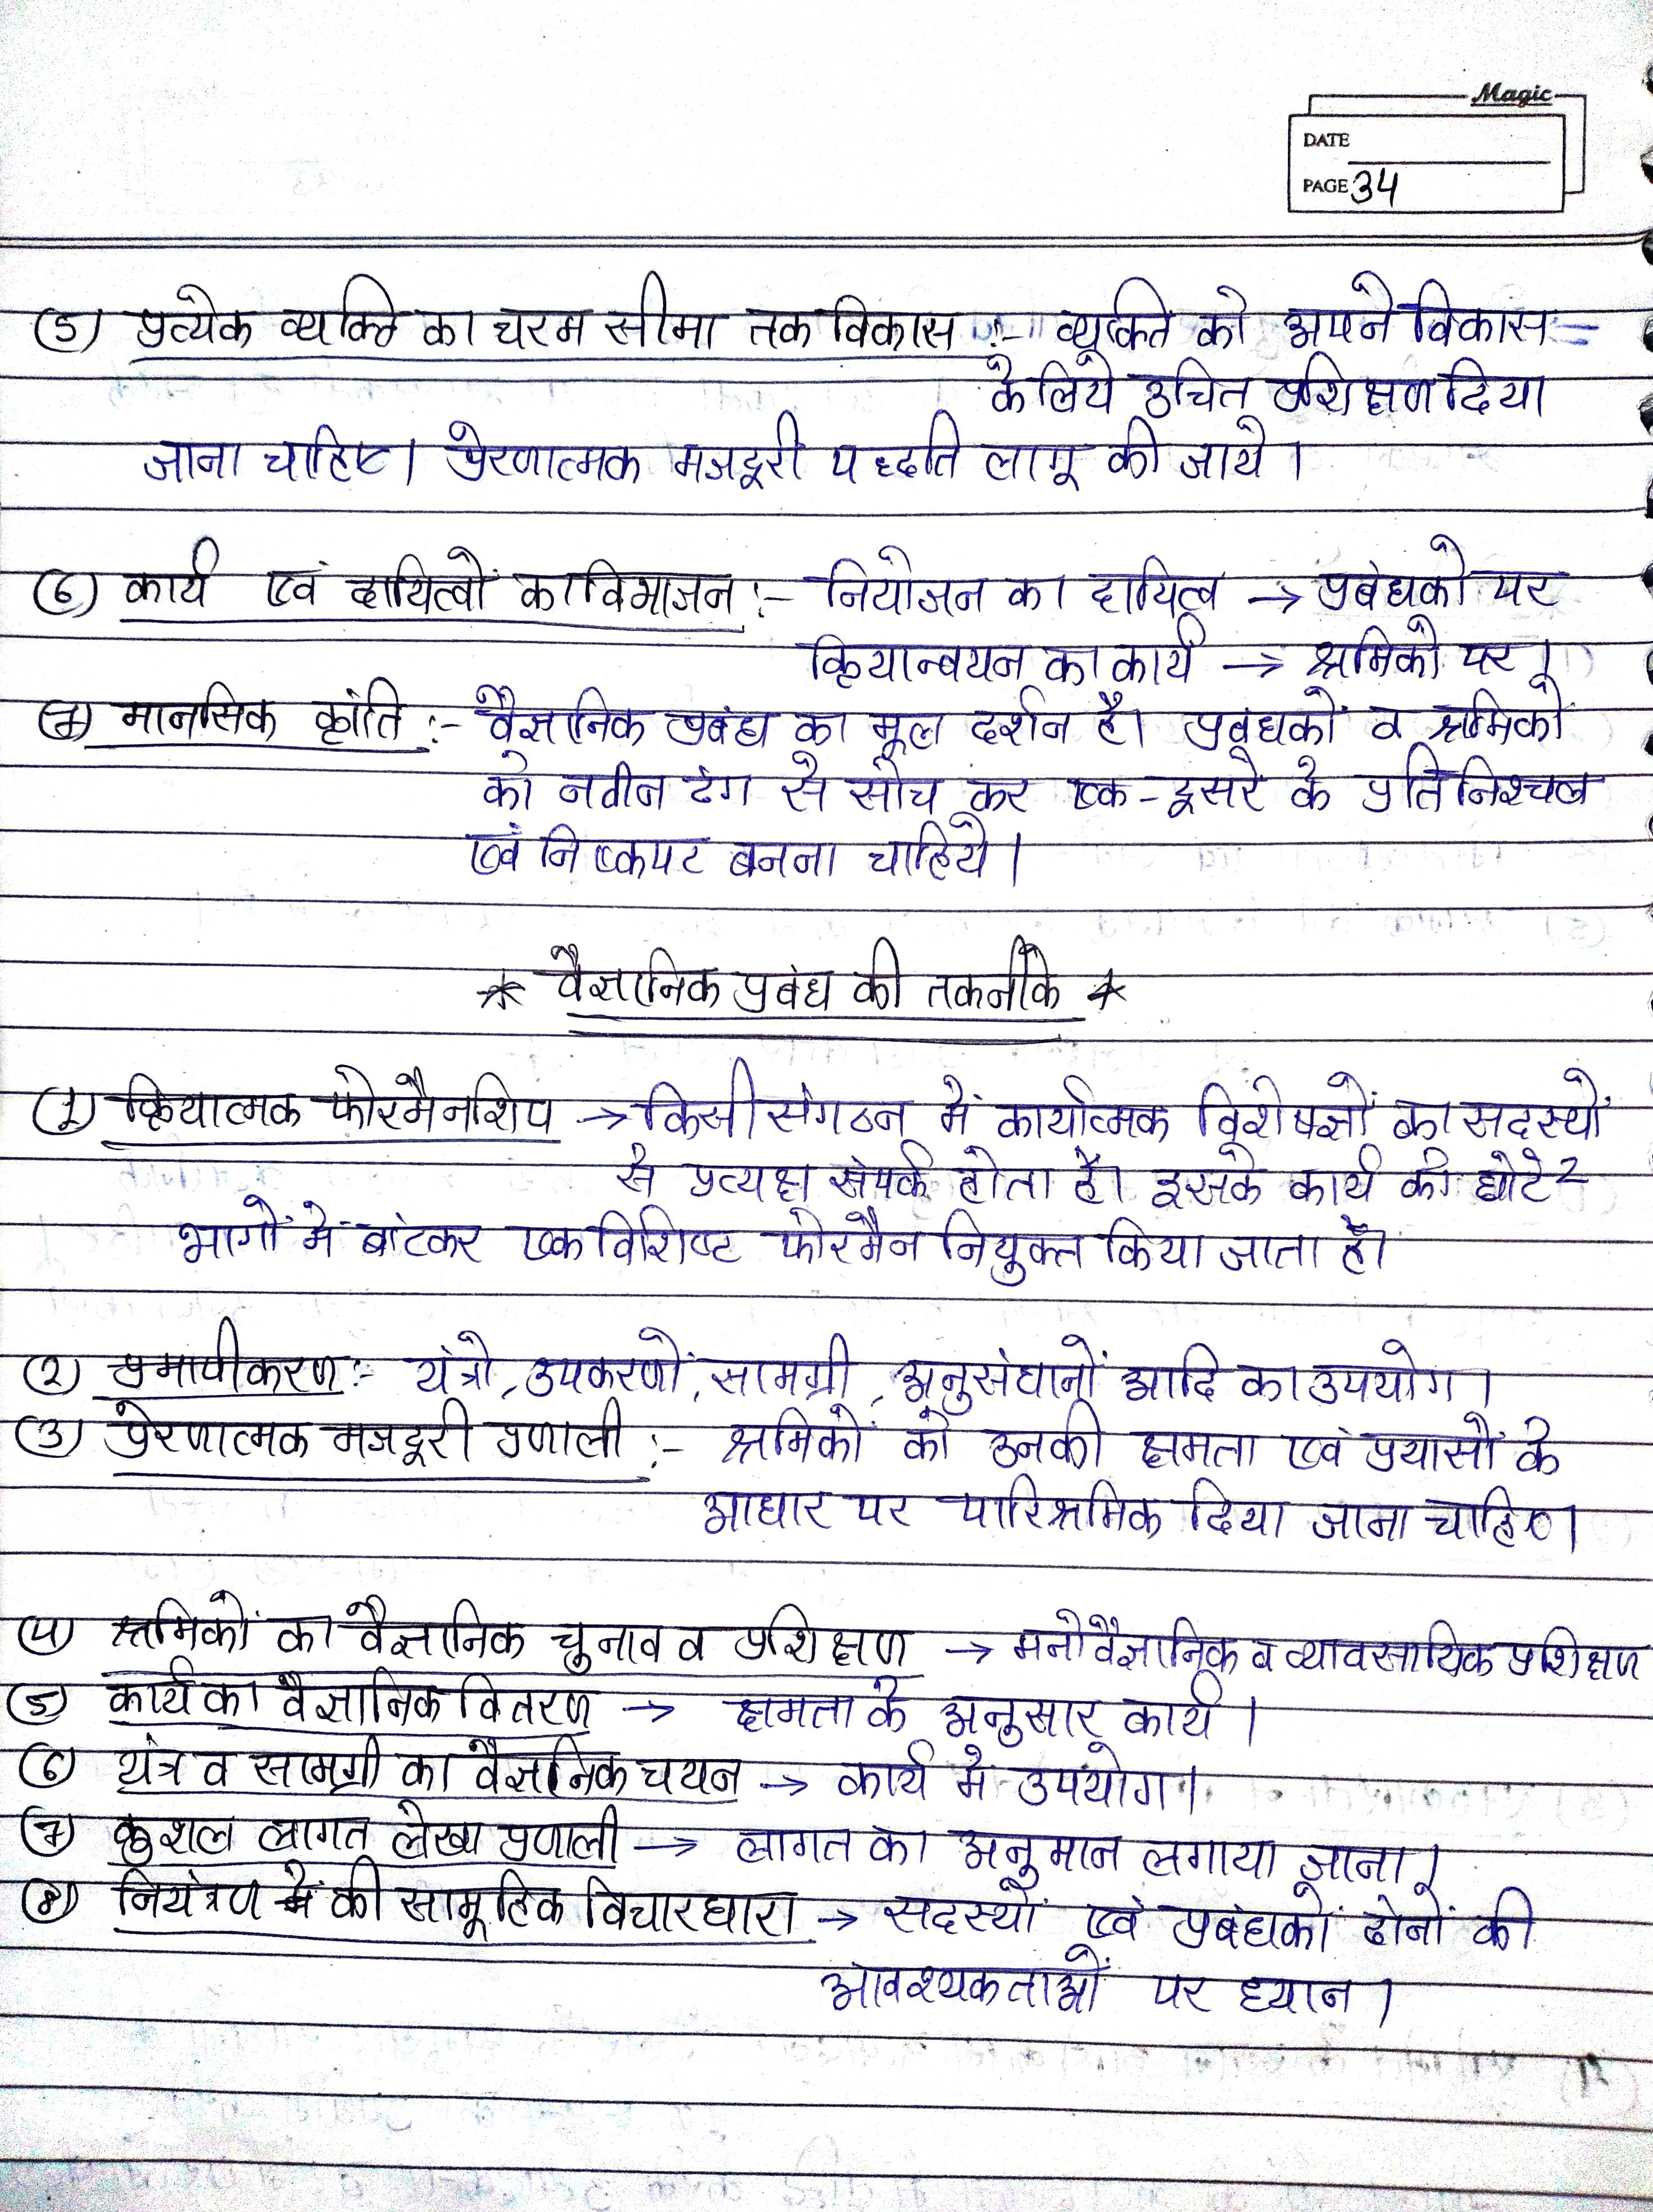 Magic
DATE
PAGE 34
(5) प्रत्येक व्यक्ति का चरम सीमा तक विकास :- व्यक्ति को अपने विकास
के लिये उचित प्रशिक्षण दिया
जाना चाहिए। प्रेरणात्मक मजदूरी पद्धति लागू की जाये।
(6) कार्य एवं दायित्वों का विभाजन :- नियोजन का दायित्व → प्रबंधको पर
क्रियान्वयन का कार्य → श्रमिको पर।
(7) मानसिक क्रांति :- वैज्ञानिक प्रबंध का मूल दर्शन है। प्रबंधकों व श्रमिकों
को नवीन ढंग से सोच कर एक-दूसरे के प्रति निश्चल
एवं निष्कपट बनना चाहिये।
* वैज्ञानिक प्रबंध की तकनीके *
(1) क्रियात्मक फोरमैनशिप → किसी संगठन में कार्यात्मक विशेषज्ञों का सदस्यों
से प्रत्यक्ष संपर्क होता है। इसके कार्य को छोटे2
भागों में बांटकर एक विशिष्ट फोरमैन नियुक्त किया जाता है।
(2) प्रमापीकरण :- यंत्रो, उपकरणों, सामग्री, अनुसंधानों आदि का उपयोग।
(3) प्रेरणात्मक मजदूरी प्रणाली :- श्रमिकों को उनकी क्षमता एवं प्रयासों के
आधार पर पारिश्रमिक दिया जाना चाहिए।
(4) श्रमिकों का वैज्ञानिक चुनाव व प्रशिक्षण → मनोवैज्ञानिक व व्यावसायिक प्रशिक्षण
(5) कार्य का वैज्ञानिक वितरण → क्षमता के अनुसार कार्य।
(6) यंत्र व सामग्री का वैज्ञानिक चयन → कार्य मे उपयोग।
(7) कुशल लागत लेखा प्रणाली → लागत का अनुमान लगाया जाना।
(8) नियंत्रण की सामूहिक विचारधारा → सदस्यों एवं प्रबंधकों दोनों की
आवश्यकताओं पर ध्यान।